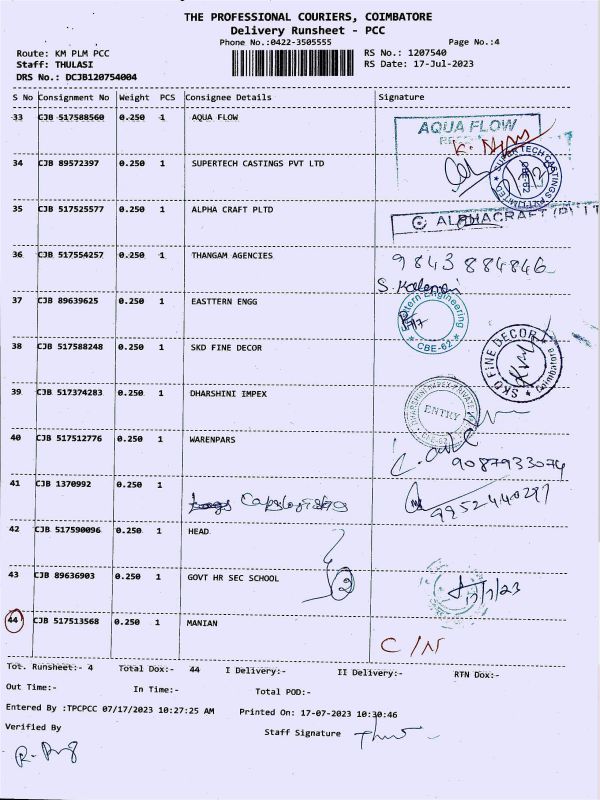 THE PROFESSIONAL COURIERS, COIMBATORE
Delivery Runsheet - PCC
Phone No.:0422-3505555 Page No.:4
Route: KM PLM PCC RS No.: 1207540
Staff: THULASI RS Date: 17-Jul-2023
DRS No.: DCJB120754004
S No Consignment No Weight PCS Consignee Details Signature
33 CJB 517588560 0.250 1 AQUA FLOW
AQUA FLOW
34 CJB 89572397 0.250 1 SUPERTECH CASTINGS PVT LTD
SUPERTECH CASTINGS PVT LIMITED
35 CJB 517525577 0.250 1 ALPHA CRAFT PLTD
ALPHACRAFT (P) LT
36 CJB 517554257 0.250 1 THANGAM AGENCIES
9843884846
37 CJB 89639625 0.250 1 EASTTERN ENGG
Eastern Engineering
CBE-62
38 CJB 517588248 0.250 1 SKD FINE DECOR
SKD FINE DECOR
Coimbatore
39 CJB 517374283 0.250 1 DHARSHINI IMPEX
DHARSHINI IMPEX PRIVATE
ENTRY
CBE-62
40 CJB 517512776 0.250 1 WARENPARS
9087933074
41 CJB 1370992 0.250 1
9952440297
42 CJB 517590096 0.250 1 HEAD
43 CJB 89636903 0.250 1 GOVT HR SEC SCHOOL
17/7/23
44 CJB 517513568 0.250 1 MANIAN
C/N
Tot. Runsheet:- 4 Total Dox:- 44 I Delivery:- II Delivery:- RTN Dox:-
Out Time:- In Time:- Total POD:-
Entered By :TPCPCC 07/17/2023 10:27:25 AM Printed On: 17-07-2023 10:30:46
Verified By Staff Signature